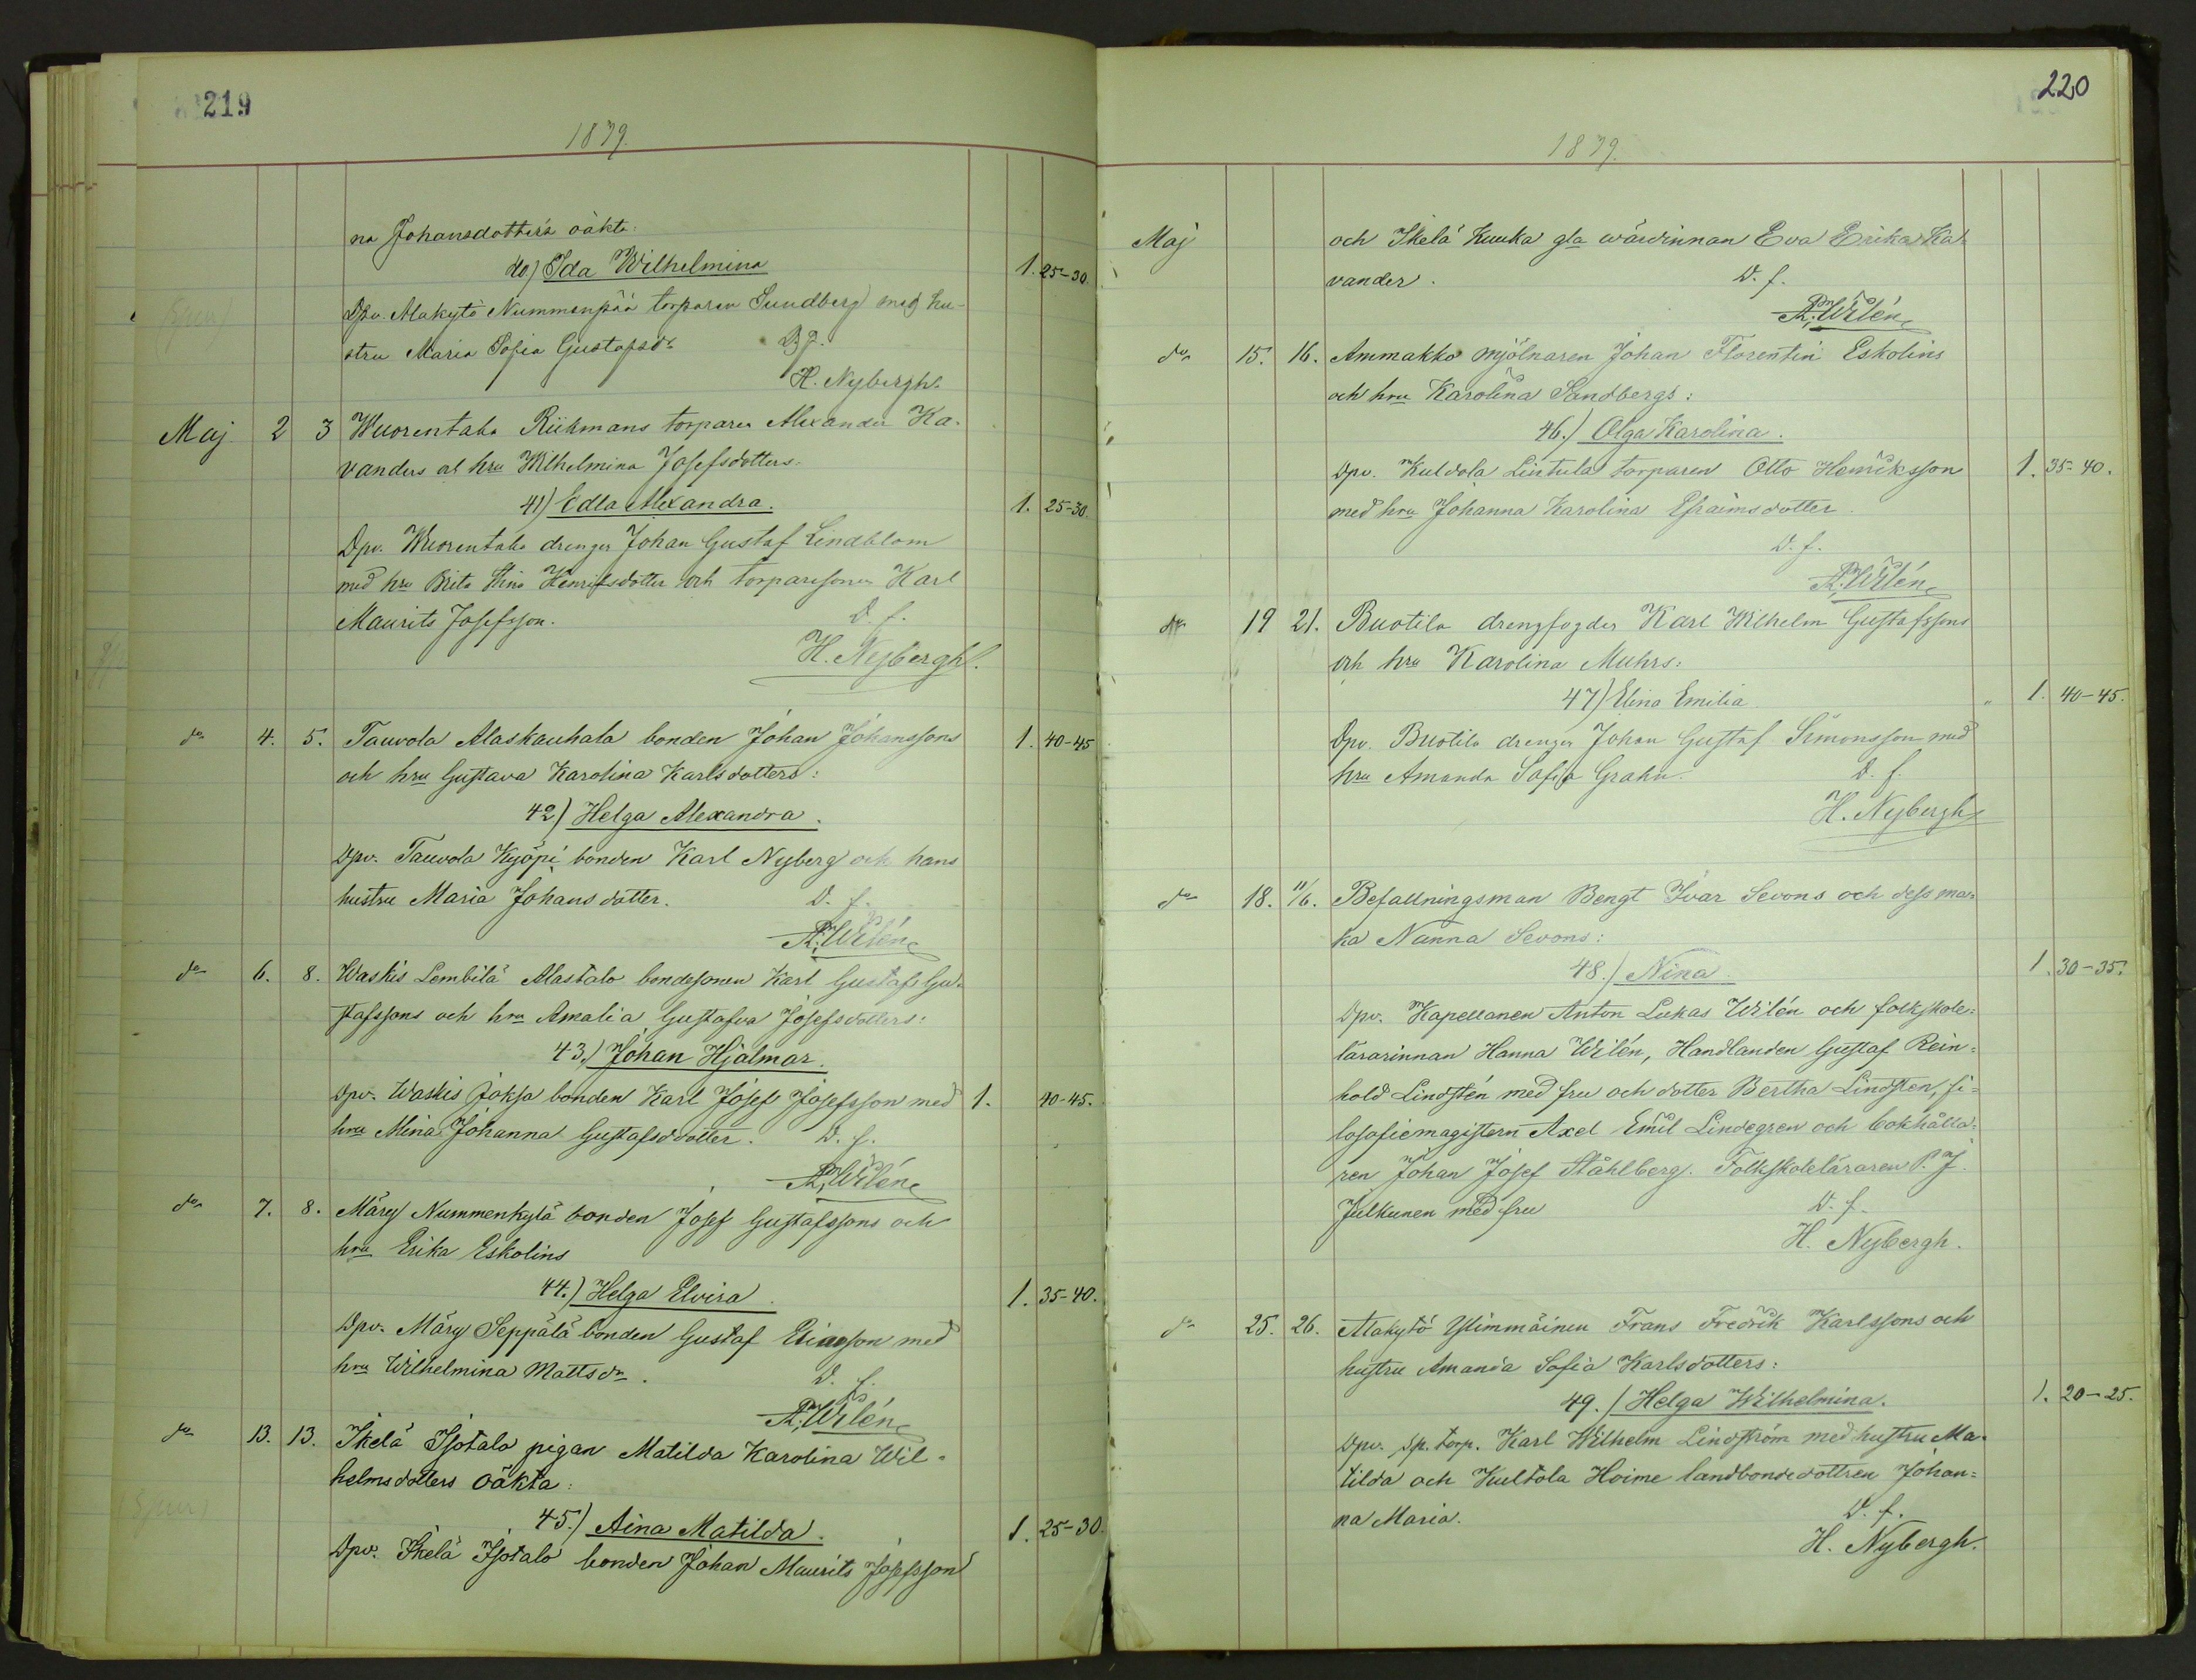 219
1879.
na Johansdotters oäkta:
40) Ida Wilhelmina 1. 25-30.
Dpv. Alakytö Nummenpää torparen Sundberg med hu-
stru Maria Sofia Gustafsdr
H. Nybergh.
Maj 2 3 Wuorentaka Riikmans torparen Alexander Ka-
vanders al hru Wilhelmina Josefsdotters.
41) Edla Alexandra. 1. 25-30.
Dpv. Wuorentaka drengen Johan Gustaf Lindblom
med hru Brita Stina Henriksdotter och torparesonen Karl
Maurits Josefsson. D. f.
H. Nybergh.
do 4. 5. Tauvola Alaskauhala bonden Johan Johanssons 1. 40-45
och hru Gustava Karolina Karlsdotters:
42) Helga Alexandra.
Dpv. Tauvola Kyöpi bonden Karl Nyberg och hans
hustru Maria Johansdotter. D. f.
A. Wilén
do 6. 8. Waskis Lembilä Alastalo bondesonen Karl Gustaf Gu-
stafssons och hru Amalia Gustafva Josefsdotters:
43.) Johan Hjalmar.
Dpv. Waskis Jaksa bonden Karl Josef Josefsson med 1. 40-45.
hru Mina Johanna Gustafsdotter. D. f.
A. Wilén
do 7. 8. Märy Nummenkylä bonden Josef Gustafssons och
hru Erika Eskolins
44.) Helga Elvira. 1. 35-40.
Dpv. Märy Seppälä bonden Gustaf Eliasson med
hru Wilhelmina Mattsdr. D. f.
A. Wilén
do 13. 13. Ikelä Isotalo pigan Matilda Karolina Wil-
helmsdotters oäkta:
45.) Aina Matilda. 1. 25-30.
Dpv. Ikelä Isotalo bonden Johan Maurits Josefsson
220
1879.
Maj och Ikelä Kuuka gla wärdinnan Eva Erika Ka-
vander. D. f.
A. Wilén
do 15. 16. Ammakko mjölnaren Johan Florentin Eskolins
och hru Karolina Sandbergs:
46.) Olga Karolina.
Dpv. Kuldola Lintula torparen Otto Henriksson 1. 35-40.
med hru Johanna Karolina Efraimsdotter
D. f.
A. Wilén
do 19 21. Buotila drengfogden Karl Wilhelm Gustafssons
och hru Karolina Muhrs:
47) Elina Emilia 1. 40-45.
Dpv. Buotila drengen Johan Gustaf Simonsson med
hru Amanda Sofia Grahn. D. f.
H. Nybergh
do 18. 11/6. Befallningsman Bengt Ivar Sevons och dess ma-
ka Nanna Sevons:
48.) Nina. 1. 30-35.
Dpv. Kapellanen Anton Lukas Wilén och folkskole-
lärarinnan Hanna Wilén, Handlanden Gustaf Rein-
hold Lindstén med fru och dotter Bertha Lindstén, fi-
losofiemagistern Axel Emil Lindegren och bokhålla-
ren Johan Josef Ståhlberg. Folkskoleläraren P. J.
Julkunen med fru D. f.
H. Nybergh.
do 25. 26. Alakytö Ylimmäinen Frans Fredrik Karlssons och
hustru Amanda Sofia Karlsdotters:
49.) Helga Wilhelmina. 1. 20-25.
Dpv. sp. torp. Karl Wilhelm Lindström med hustru Ma-
tilda och Kultola Hoime landbondedottren Johan-
na Maria. D. f.
H. Nybergh.